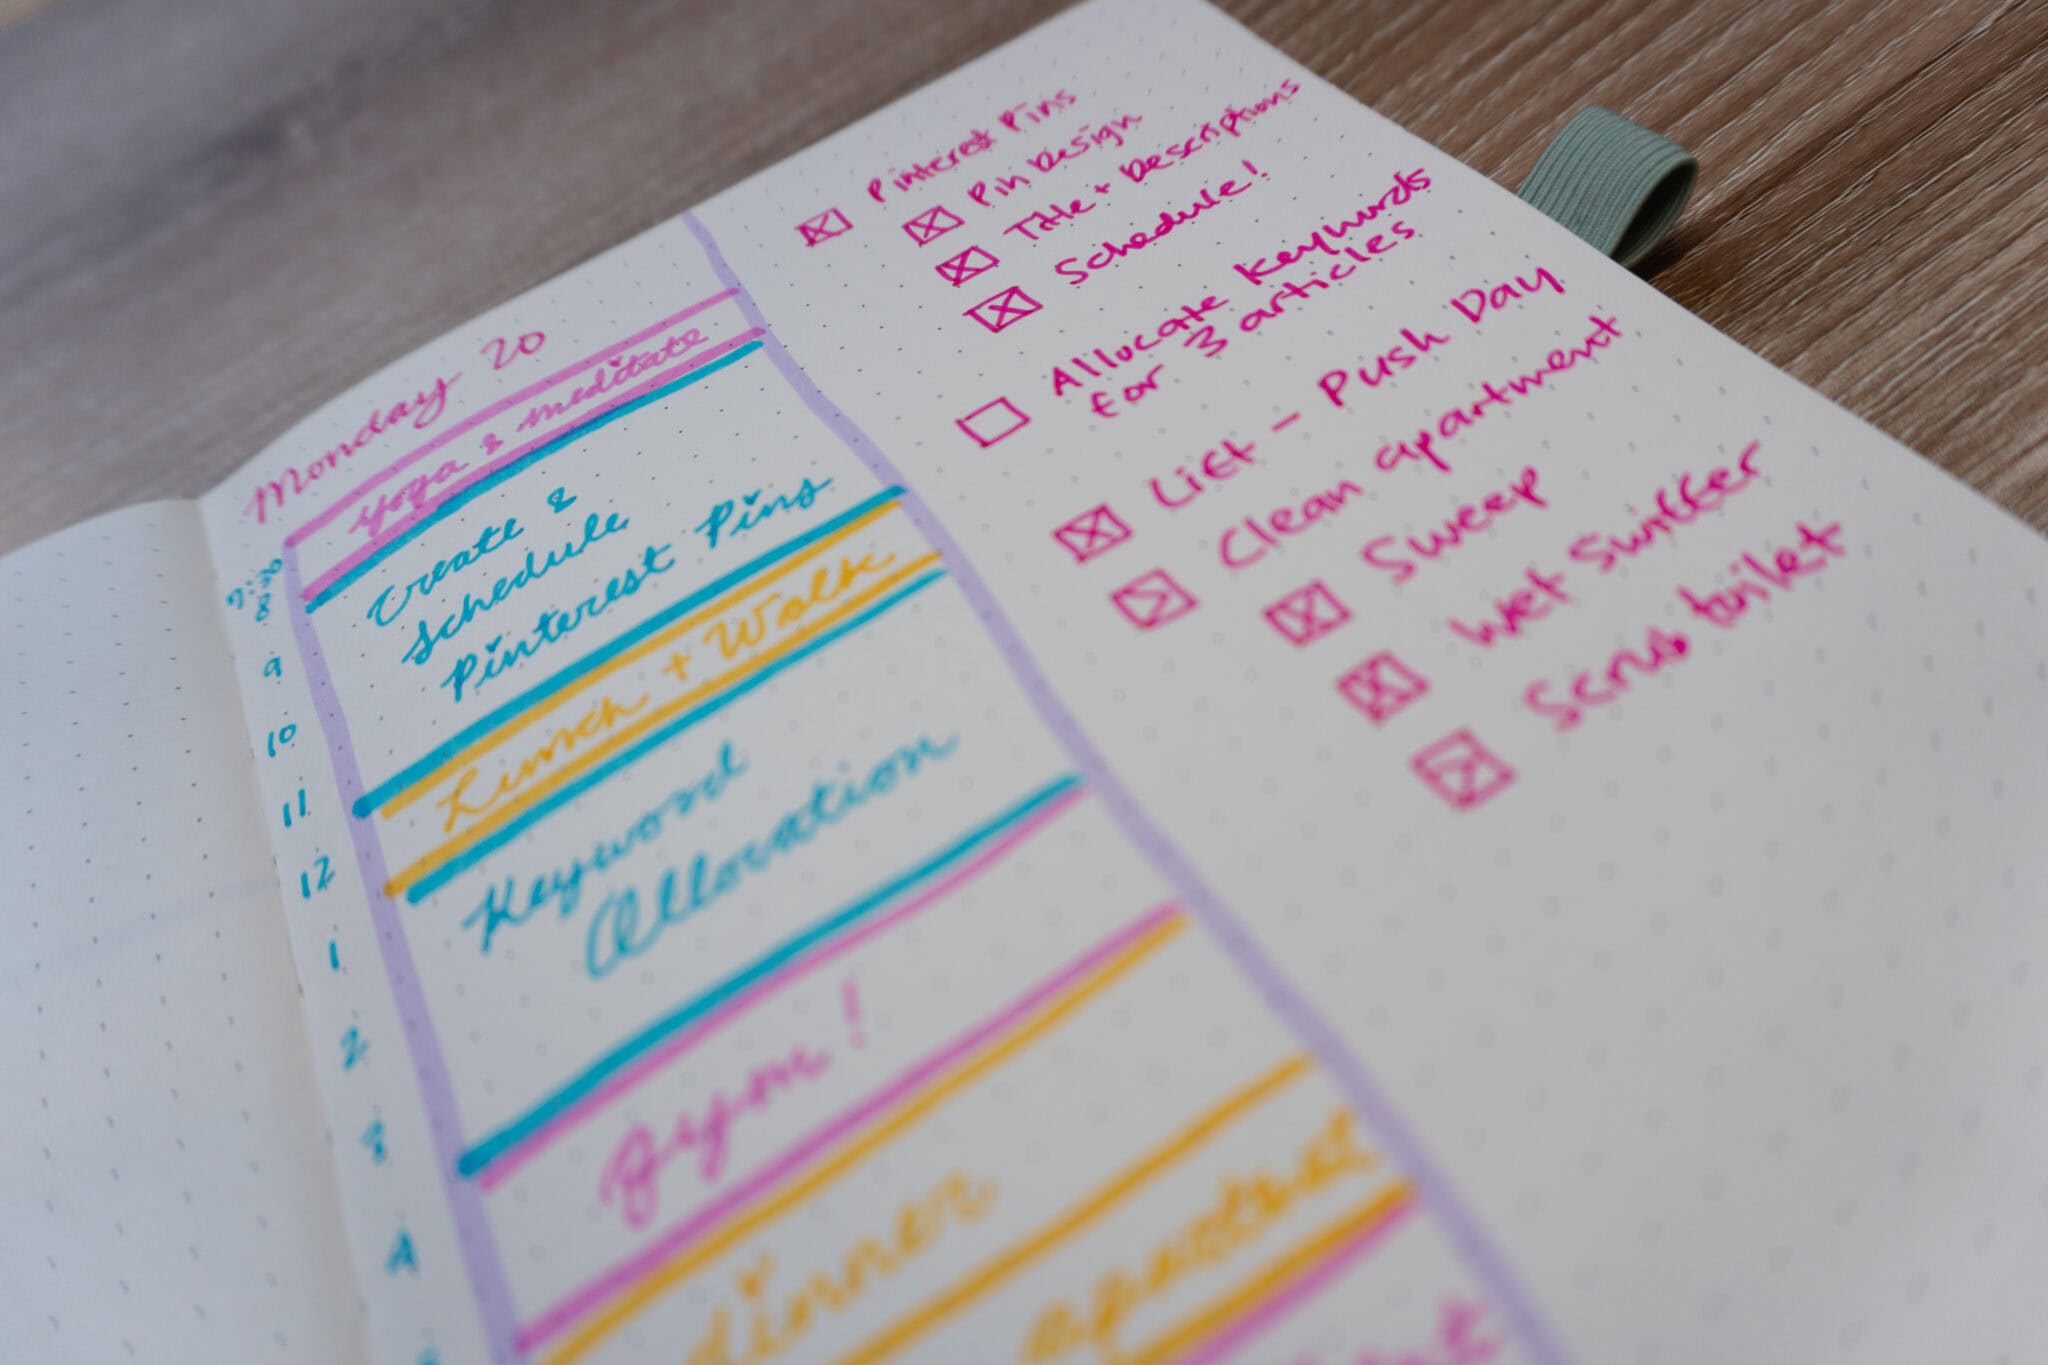 Monday 20
7:30
8
9
10
11
12
1
2
3
4
Yoga & meditate
Create &
Schedule
Pinterest Pins
Lunch + Walk
Keyword
Allocation
Gym!
dinner
apartment
Pinterest Pins
Pin Design
Title + Descriptions
Schedule!
Allocate Keywords
for 3 articles
Lift - Push Day
Clean apartment
Sweep
Wet Swiffer
Scrub toilet